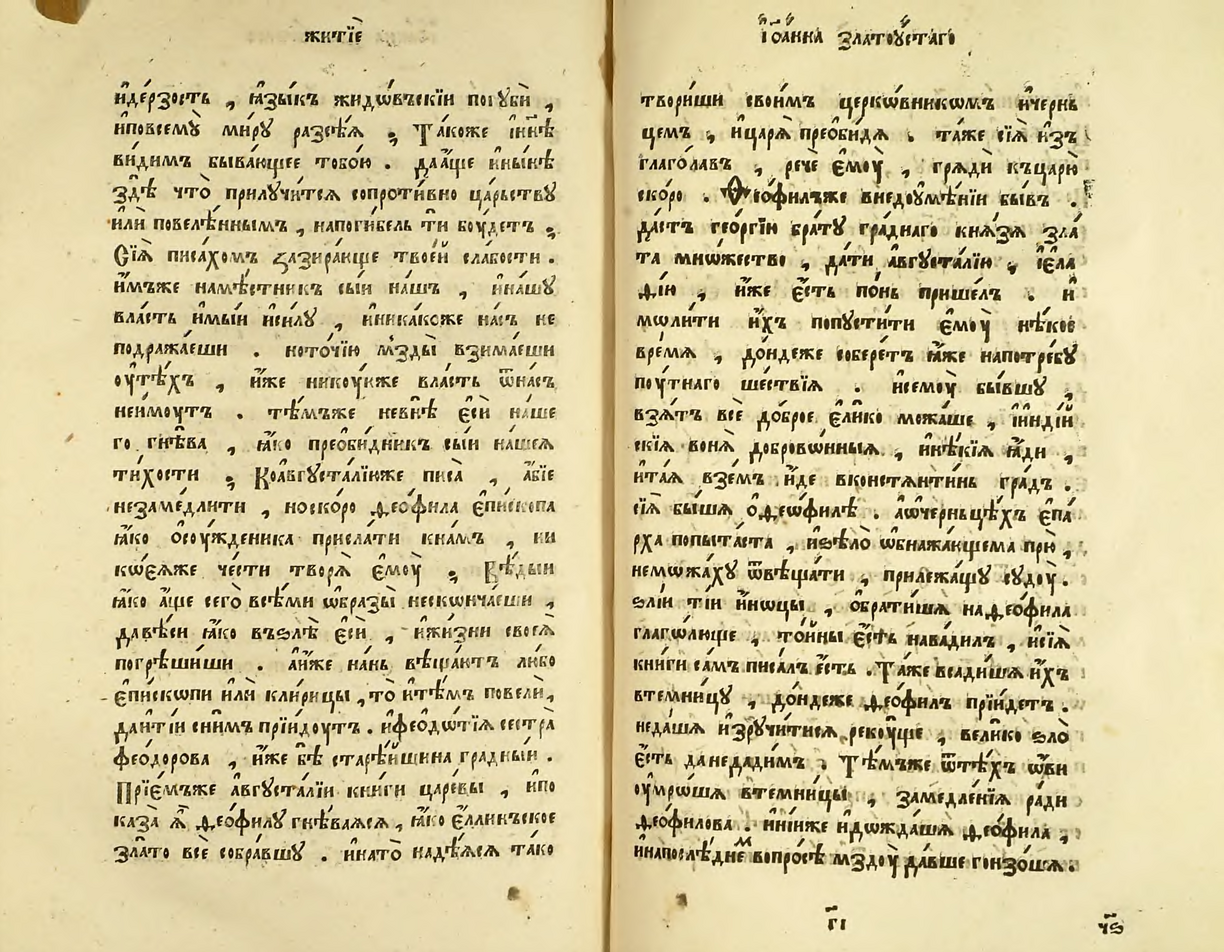 житїѐ
и҆де́рзость , ꙗ҆зы́къ жидѡ́въскїи погꙋбѝ ,
и҆повсемꙋ̀ ми́рꙋ разсѣ́ѧ . Та́коже и҆ны́нѣ
ви́димъ быва́ющее тобо́ю . даа́ще и҆ны́нѣ
здѣ̀ что̀ прилꙋчи́тсѧ сопроти́вно ца́рьствꙋ
и҆лѝ повелѣ́ннымъ , напоги́бель тѝ бꙋ́детъ .
Сїѧ̑ писа́хомъ зазира́юще твое́й сла́бости .
и҆́мъже намѣ́стникъ сы́и на́шъ , и҆на́шꙋ
вла́сть и҆мы́и и҆си́лꙋ , и҆ника́коже на́съ не
подража́еши . ното́чїю мзды̀ взима́еши
ᲂу҆тѣ́хъ , и҆̀же никоу́иже вла́сть ѿна́съ
неи́моутъ . тѣ́мъже невнѣ̀ є҆сѝ на́ше
го гнѣ́ва , ꙗ҆́ко преѻби́дникъ сы́и на́шеѧ
ти́хости . Коа́вгꙋста́лїюже писа̀ , а҆́бїе
незаме́длити , носко́ро ѳео́фила є҆пи́скопа
ꙗ҆́ко ѻ҆соу́жденика присла́ти кна́мъ , ни
коѐѧже че́сти творѧ̀ є҆моу̀ . Вѣ́дыи
ꙗ҆́ко а҆́ще сего̀ всѣ́ми ѡ҆́бразы несконча́еши ,
да́вѣси ꙗ҆́ко въѕлѣ̀ є҆сѝ , и҆жи́зни своеѧ̀
погрѣши́ши . а҆и҆́же на́нь вѣща́ютъ либо
є҆пи́скопи и҆лѝ кли́рицы , то̀ и҆тѣ́мъ повелѝ ,
даи҆ті́и сни́мъ прїи́доутъ . и҆ѳеодѡ́тїѧ сестра̀
ѳео́дорова , и҆́же бѣ̀ старѣ́йшина гра́дныи .
Прїе́мъже а҆вгꙋста́лїи кни́ги ца́ревы , и҆по
каза̀ ꙗ҆̀ ѳео́филꙋ гнѣ́ваѧсѧ , ꙗ҆́ко є҆́ллинъское
зла́то всѐ собра́вшꙋ . и҆нато̀ надѣ́ѧсѧ та́ко
і҆ѡа́нна златоꙋ́стаго
твори́ши свои́мъ церко́вникомъ и҆черньь
цемъ , и҆царѧ̀ преѻби́дѧ . та́же сїѧ̑ и҆зъ
глаго́лавъ , речѐ є҆моу̀ , грѧдѝ къцарю̀
ско́ро . Ѳео́филъже внедоумѣ́нїи бы́въ .
да́стъ гео́ргїю бра́тꙋ гра́днаго кнѧ́зѧ зла́
та мно́жество , да́ти а҆вгꙋста́лїю , і҆є҆ла́
дїю , и҆́же є҆́сть по́нь прише́лъ . и҆
моли́ти и҆́хъ попꙋсти́ти є҆моу̀ нѣ́кое
вре́мѧ , до́ндеже собере́тъ ꙗ҆́же напотре́бꙋ
поу́тнаго ше́ствїѧ . и҆семоу̀ бы́вшꙋ ,
взѧ́тъ всѐ до́брое є҆ли́ко можа́ше , и҆и҆нді́й
скїѧ вонѧ̀ доброво́нныѧ , и҆нѣ́кїѧ ꙗ҆́ди ,
и҆та́ѧ взе́мъ и҆́де вконстѧнти́нь гра́дъ .
сїѧ̑ бы́шѧ ѻ҆ѳео́филѣ . а҆ѡчерньцѣ́хъ є҆па́
рха попыта́ста , и҆ѕѣло̀ ѡ҆бнажа́ющема прю̀ ,
неможа́хꙋ ѿвѣща́ти , прилежа́щꙋ сꙋдоу̀ .
ѕлі́и ті́и и҆́ноцы , ѻ҆брати́шѧ наѳео́фила
глаго́люще , то́ины є҆́сть нава́дилъ , и҆сїѧ̑
кни́ги са́мъ писа́лъ є҆́сть . Та́же всади́шѧ и҆́хъ
втемни́цꙋ , до́ндеже ѳео́филъ прїи́детъ .
неда́шѧ и҆зрꙋчи́тисѧ рекоу́ще , вели́ко ѕло̀
є҆́сть данедади́мъ . Тѣ́мъже ѿтѣ́хъ ѡ҆́ви
ᲂу҆мро́шѧ втемни́цы , замедле́нїѧ ра́ди
ѳео́филова . и҆ни́иже и҆дожда́шѧ ѳео́фила ,
и҆напослѣ́днемъ вопро́сѣ мздоу̀ да́вше гонзо́шѧ .
г҃і
ч҃ѕ